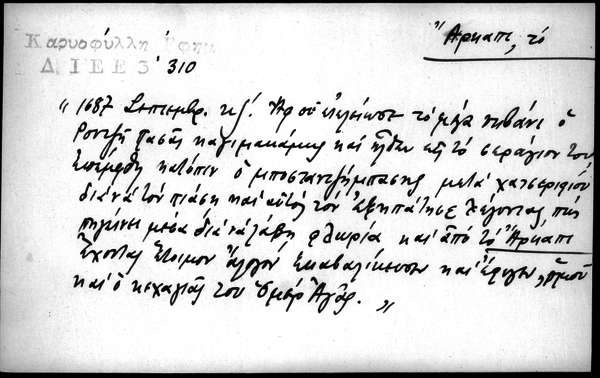 Καρυοφύλλη Εφημ
Ἄρκαπι, τὸ
ΔΙΕΕ 3' 310
" 1687 Σεπτεμβρ. κζ'. Ἀφ οὗ ἐτελείωσε τὸ μέγα τιβάνι ὁ
Ρετζὴπ πασᾶς καγιμακάμης καὶ ἦλθεν εἰς τὸ σεράγιον του
ἐπέμφθη κατόπιν ὁ μποσταντζήμπασης μετὰ χατσερίφιου
διὰ νὰ τὸν πιάσῃ καὶ αὐτὸς τὸν ἐξηπάτησε λέγοντας, πῶς
πηγαίνει μέσα διὰ νὰ λάβῃ φλωρία καὶ ἀπὸ τὸ Ἄρκαπι
ἔχοντας ἕτοιμον ἄλογον ἐκαβαλίκευσεν καὶ ἔφυγεν, ὁμοῦ
καὶ ὁ κεχαγιᾶς του Ὁμὲρ Ἀγᾶς. "